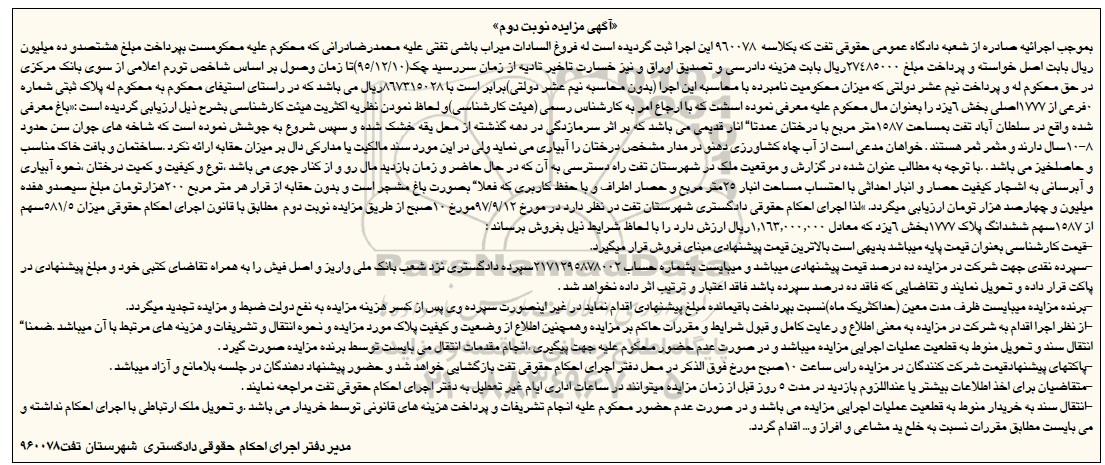 «آگهی مزایده نوبت دوم»
بموجب اجرائیه صادره از شعبه دادگاه عمومی حقوقی تفت که بکلاسه ۹۶۰۰۷۸ این اجرا ثبت گردیده است له فروغ السادات میراب باشی تفتی علیه محمدرضادرانی که محکوم علیه محکومست بپرداخت مبلغ هشتصدو ده میلیون
ریال بابت اصل خواسته و پرداخت مبلغ ۲۷۴۸۵۰۰۰ریال بابت هزینه دادرسی و تصدیق اوراق و نیز خسارت تاخیر تادیه از زمان سررسید چک(۹۵/۱۲/۱۰)تا زمان وصول بر اساس شاخص تورم اعلامی از سوی بانک مرکزی
در حق محکوم له و پرداخت نیم عشر دولتی که میزان محکومیت نامبرده با محاسبه این اجرا (بدون محاسبه نیم عشر دولتی)برابر است با ۸۶۷۳۱۵۰۲۸ریال می باشد که در راستای استیفای محکوم به محکوم له پلاک ثبتی شماره
۰فرعی از ۱۷۷۷اصلی بخش ۶یزد را بعنوان مال محکوم علیه معرفی نموده است که با ارجاع امر به کارشناس رسمی (هیئت کارشناسی)و لحاظ نمودن نظریه اکثریت هیئت کارشناسی بشرح ذیل ارزیابی گردیده است :«باغ معرفی
شده واقع در سلطان آباد تفت بمساحت ۱۵۸۷متر مربع با درختان عمدتا" انار قدیمی می باشد که بر اثر سرمازدگی در دهه گذشته از محل یقه خشک شده و سپس شروع به جوشش نموده است که شاخه های جوان سن حدود
۸-۱۰سال دارند و مثمر ثمر هستند . خواهان مدعی است از آب چاه کشاورزی دهنو در مدار مشخص درختان را آبیاری می نماید ولی در این مورد سند مالکیت یا مدارکی دال بر میزان حقابه ارائه نکرد .ساختمان و بافت خاک مناسب
و حاصلخیز می باشد ..با توجه به مطالب عنوان شده در گزارش و موقعیت ملک در شهرستان تفت راه دسترسی به آن که در حال حاضر و زمان بازدید مال رو و از کنار جوی می باشد ،توع و کیفیت و کمیت درختان ،نحوه آبیاری
و آبرسانی به اشجار کیفیت حصار و انبار احداثی با احتساب مساحت انبار ۲۵متر مربع و حصار اطراف و با حفظ کاربری که فعلا" بصورت باغ مشجر است و بدون حقابه از قرار هر متر مربع ۲۰۰هزارتومان مبلغ سیصدو هفده
میلیون و چهارصد هزار تومان ارزیابی میگردد. »لذا اجرای احکام حقوقی دادگستری شهرستان تفت در نظر دارد در مورخ ۹۷/۹/۱۲مورخ ۱۰صبح از طریق مزایده نوبت دوم مطابق با قانون اجرای احکام حقوقی میزان ۵۸۱/۵سهم
از ۱۵۸۷سهم ششدانگ پلاک ۱۷۷۷بخش ۶یزد که معادل ۱,۱۶۳,۰۰۰,۰۰۰ریال ارزش دارد را با لحاظ شرایط ذیل بفروش برساند :
-قیمت کارشناسی بعنوان قیمت پایه میباشد بدیهی است بالاترین قیمت پیشنهادی مبنای فروش قرار میگیرد.
-سپرده نقدی جهت شرکت در مزایده ده درصد قیمت پیشنهادی میباشد و میبایست بشماره حساب ۲۱۷۱۲۹۵۸۷۸۰۰۲سپرده دادگستری نزد شعب بانک ملی واریز و اصل فیش را به همراه تقاضای کتبی خود و مبلغ پیشنهادی در
پاکت قرار داده و تحویل نمایند و تقاضایی که فاقد ده درصد سپرده باشد فاقد اعتبار و ترتیب اثر داده نخواهد شد .
-برنده مزایده میبایست ظرف مدت معین (حداکثریک ماه)نسبت بپرداخت باقیمانده مبلغ پیشنهادی اقدام نماید در غیر اینصورت سپرده وی پس از کسر هزینه مزایده به نفع دولت ضبط و مزایده تجدید میگردد.
-از نظر اجرا اقدام به شرکت در مزایده به معنی اطلاع و رعایت کامل و قبول شرایط و مقررات حاکم بر مزایده وهمچنین اطلاع از وضعیت و کیفیت پلاک مورد مزایده و نحوه انتقال و تشریفات و هزینه های مرتبط با آن میباشد .ضمنا"
انتقال سند و تحویل منوط به قطعیت عملیات اجرایی مزایده میباشد و در صورت عدم حضور محکوم علیه جهت پیگیری ،انجام مقدمات انتقال می بایست توسط برنده مزایده صورت گیرد .
-پاکتهای پیشنهادقیمت شرکت کنندگان در مزایده راس ساعت ۱۰صبح مورخ فوق الذکر در محل دفتر اجرای احکام حقوقی تفت بازگشایی خواهد شد و حضور پیشنهاد دهندگان در جلسه بلامانع و آزاد میباشد .
-متقاضیان برای اخذ اطلاعات بیشتر یا عنداللزوم بازدید در مدت ۵ روز قبل از زمان مزایده میتوانند در ساعات اداری ایام غیر تعطیل به دفتر اجرای احکام حقوقی تفت مراجعه نمایند .
-انتقال سند به خریدار منوط به قطعیت عملیات اجرایی مزایده می باشد و در صورت عدم حضور محکوم علیه انجام تشریفات و پرداخت هزینه های قانونی توسط خریدار می باشد .و تحویل ملک ارتباطی با اجرای احکام نداشته و
می بایست مطابق مقررات نسبت به خلع ید مشاعی و افراز و... اقدام گردد.
مدیر دفتر اجرای احکام حقوقی دادگستری شهرستان تفت۹۶۰۰۷۸
ParsNamadData
پایگاه اطلاع رسانی مناقصه و مزایده
۰۲۱-۸۸۳۴۹۶۷۰-۵